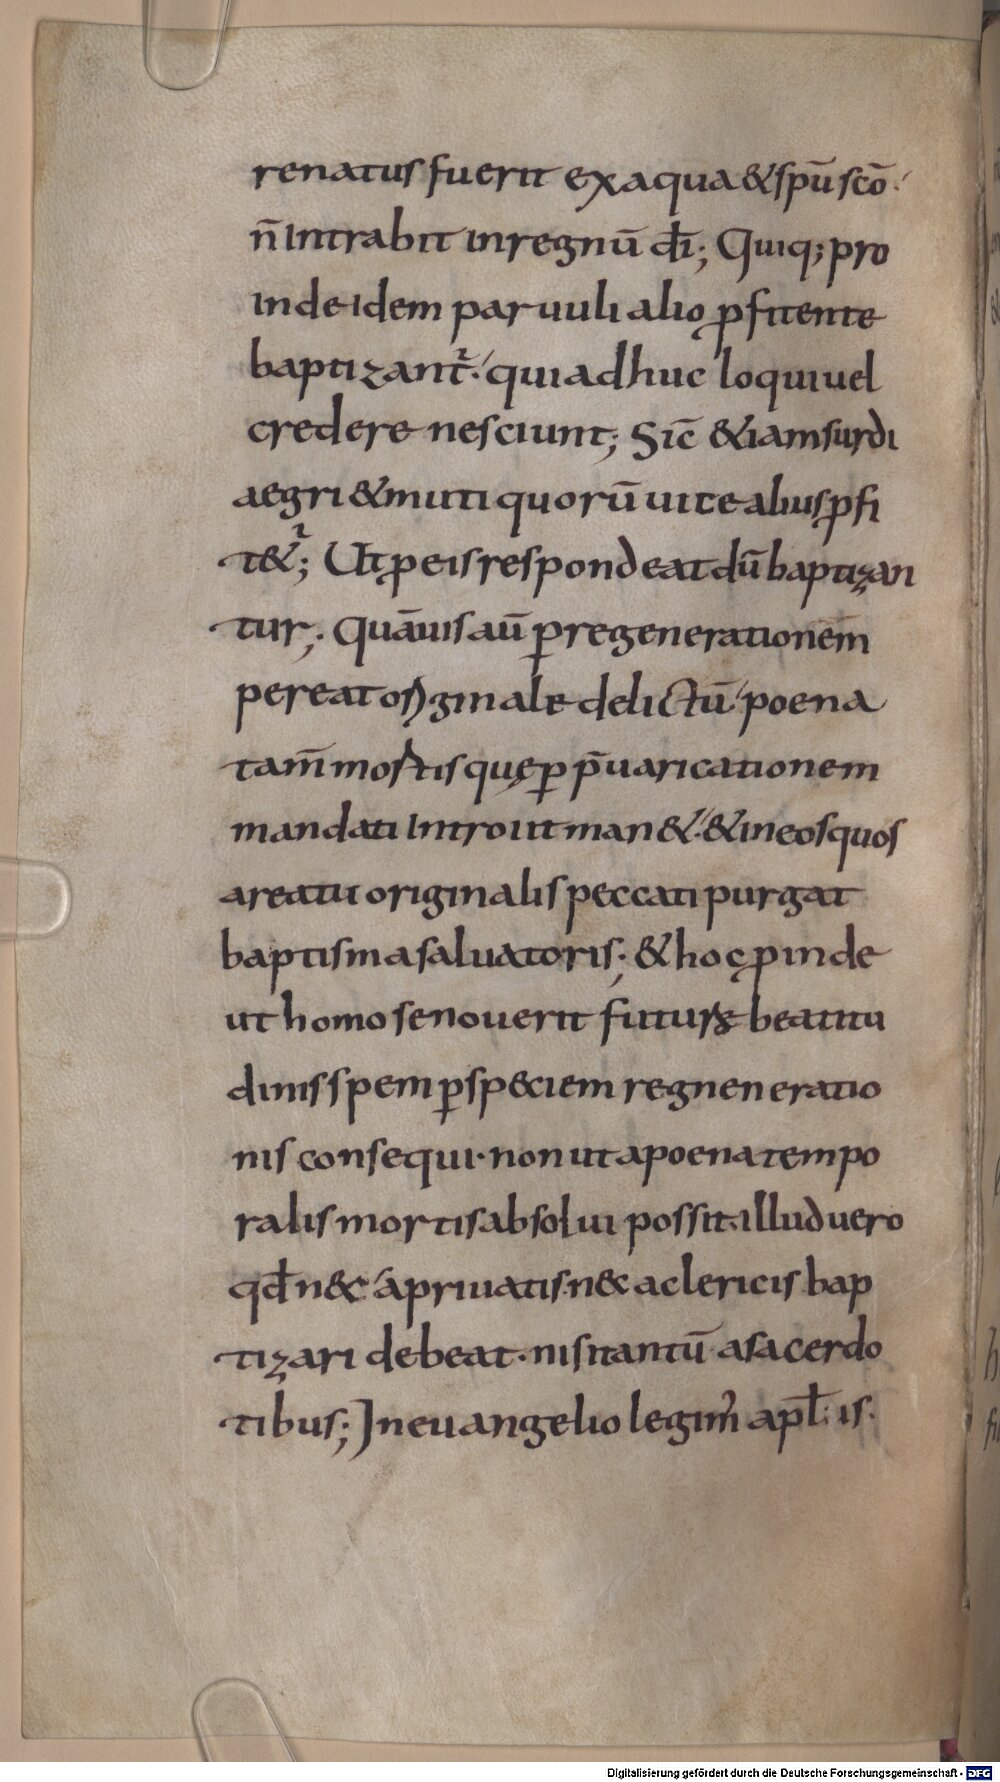 renatus fuerit ex aqua & spū scō.
n̄ intrabit in regnū dī; Quiq; pro
inde idem paruuli alio ꝓfitente
baptizant̄; qui adhuc loqui uel
credere nesciunt; Sic̄ & iam surdi
aegri & muti quorū uice alius ꝓfi
t&ur; Ut ꝓ eis respondeat dū baptizan
tur; Quāuis aū ꝑ regenerationem
pereat originale delictū poena
tam̄ mortis quę ꝑ p̄uaricationem
mandati introiit man&. & in eos quos
a reatu originalis peccati purgat
baptisma saluatoris; & hoc ꝓinde
ut homo se nouerit futurę beatitu
dinis spem ꝑ speciem regneneratio
nis consequi. non ut a poena tempo
ralis mortis absolui possit. illud uero
qd̄ n&c a priuatis. n&c a clericis bap
tizari debeat. nisi tantū a sacerdo
tibus; In euangelio legim' apl̄is.
Digitalisierung gefördert durch die Deutsche Forschungsgemeinschaft - DFG